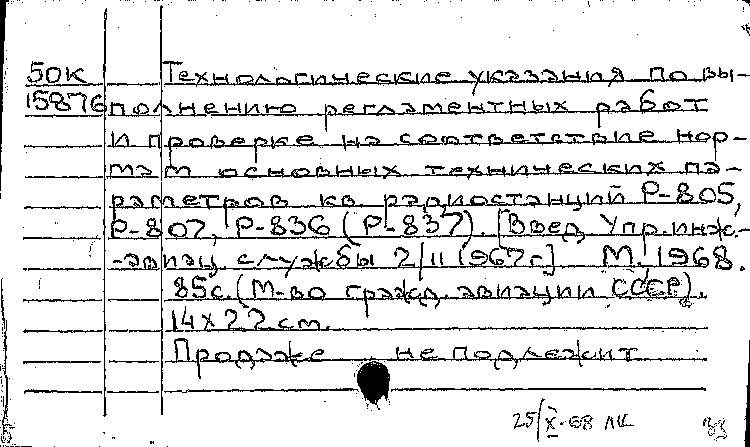 50К Технологические указания по вы-
15876 полнению регламентных работ
и проверке на соответствие нор-
мам основных технических па-
раметров кв радиостанций Р-805,
Р-807, Р-836 (Р-837). [Введ. Упр. инж.-
-авиац. службы 2/II 1967г.] М. 1968.
85с. (М-во гражд. авиации СССР).
14х22 см.
Продаже не подлежит
25/X-68 ЛК